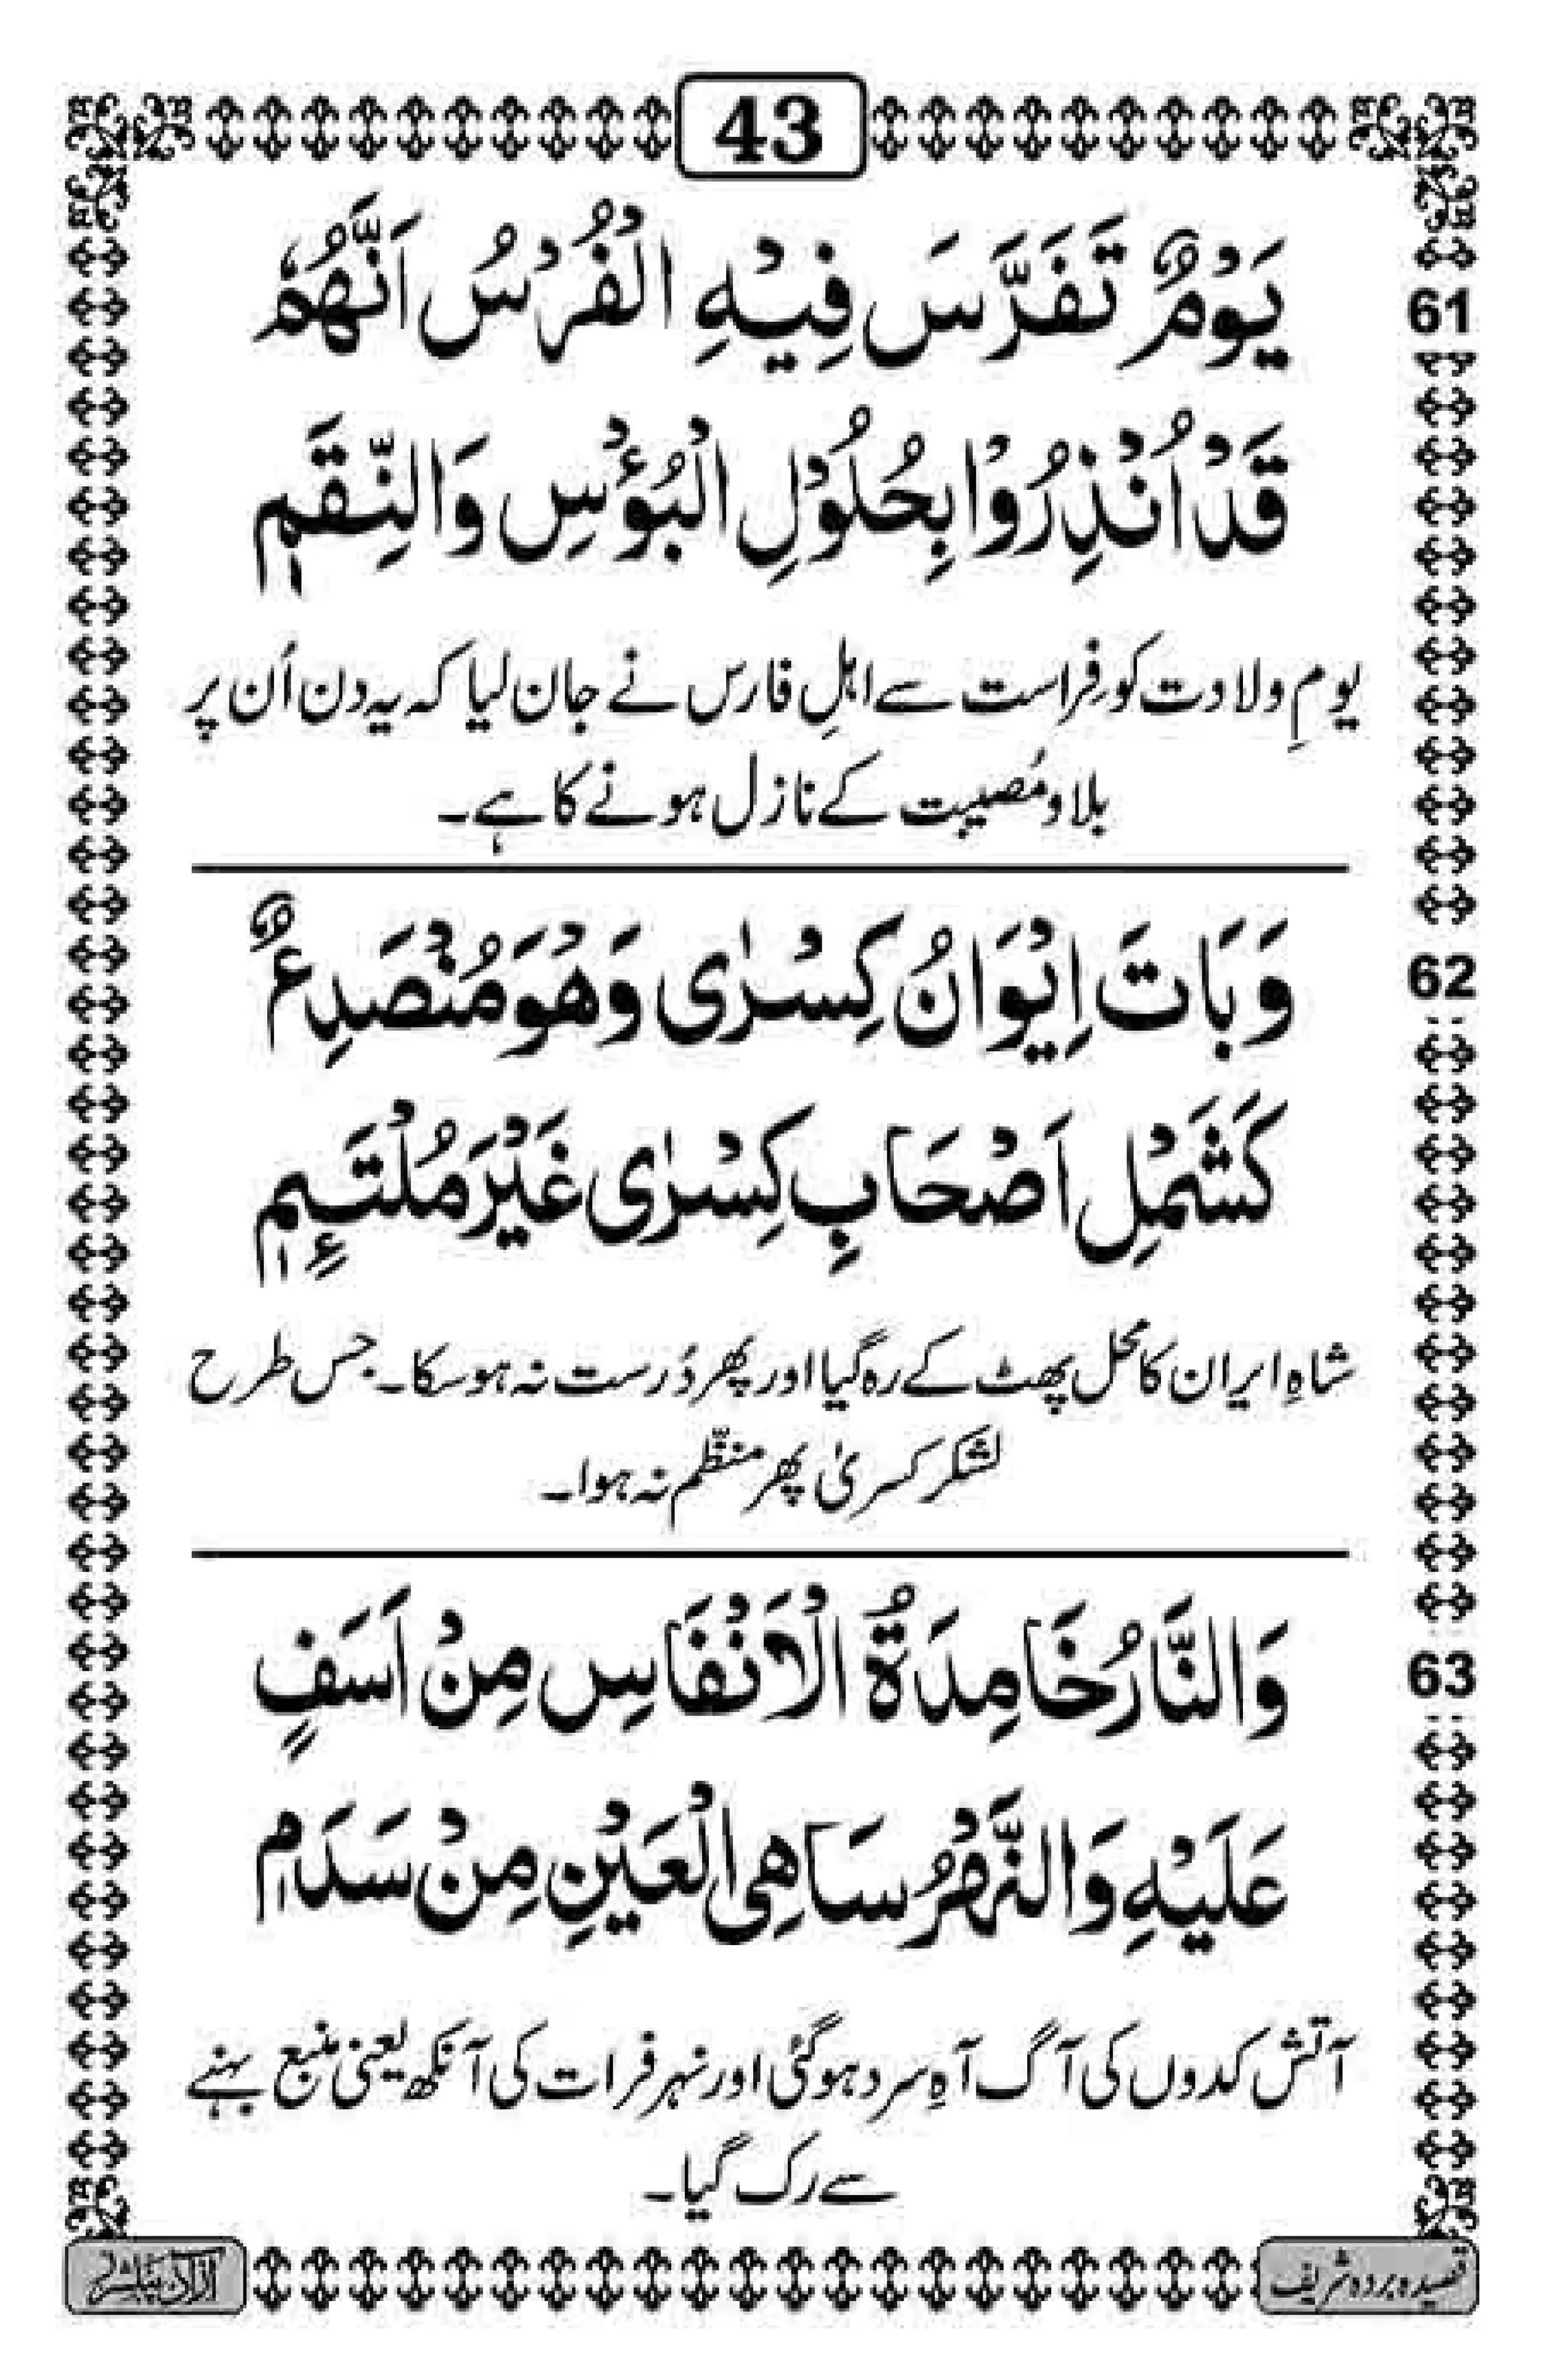 43
61
يَوْمٌ تَفَرَّسَ فِيْهِ الْفُرْسُ اَنَّهُمْ
قَدْ اُنْذِرُوْا بِحُلُوْلِ الْبُؤْسِ وَالنِّقَمٖ
یومِ ولادت کو فِراست سے اہلِ فارس نے جان لیا کہ یہ دن اُن پر
بلا و مُصیبت کے نازل ہونے کا ہے۔
62
وَبَاتَ اِيْوَانُ كِسْرٰى وَهُوَ مُنْصَدِعٌ
كَشَمْلِ اَصْحَابِ كِسْرٰى غَيْرَ مُلْتَئِمٖ
شاہِ ایران کا محل پھٹ کے رہ گیا اور پھر دُرست نہ ہو سکا۔ جس طرح
لشکر کسریٰ پھر منظّم نہ ہوا۔
63
وَالنَّارُ خَامِدَةُ الْاَنْفَاسِ مِنْ اَسَفٍ
عَلَيْهِ وَالنَّهْرُ سَاهِى الْعَيْنِ مِنْ سَدَمٖ
آتش کدوں کی آگ آہِ سرد ہوگئی اور نہر فرات کی آنکھ یعنی منبع بہنے
سے رک گیا۔
قصیدہ بردہ شریف